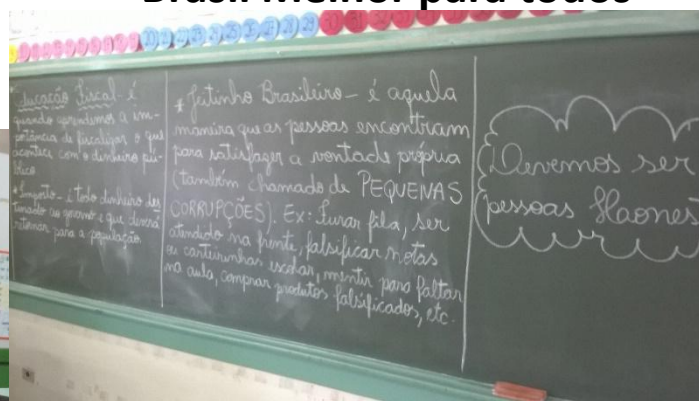 Brasil Melhor para todos
Educação Fiscal - é
quando aprendemos a im-
portância de fiscalizar o que
acontece com o dinheiro pú-
blico
* Imposto - é todo dinheiro des
tinado ao governo e que deverá
retornar para a população
* Jeitinho Brasileiro - é aquela
maneira que as pessoas encontram
para satisfazer a vontade própria
(também chamado de PEQUENAS
CORRUPÇÕES). Ex: Furar fila, ser
atendido na frente, falsificar notas
ou carteirinhas escolar, mentir para faltar
na aula, comprar produtos falsificados, etc.
Devemos ser
pessoas